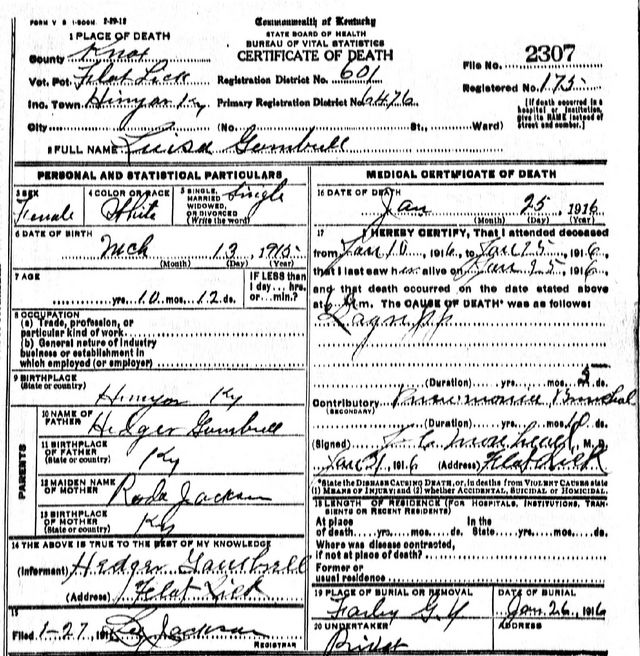 FORM V S 1-500M 2-29-12
Commonwealth of Kentucky
STATE BOARD OF HEALTH
BUREAU OF VITAL STATISTICS
CERTIFICATE OF DEATH
1 PLACE OF DEATH
County Knox
Vot. Pct. Flat Lick
Registration District No. 601
File No. 2307
Inc. Town Hinyon Ky
Primary Registration District No. 6476
Registered No. 175
City (No. St., Ward)
[If death occurred in a hospital or institution, give its NAME instead of street and number.]
2 FULL NAME Luisa Gambrell
PERSONAL AND STATISTICAL PARTICULARS
3 SEX Female
4 COLOR OR RACE White
5 SINGLE, MARRIED WIDOWED, OR DIVORCED (Write the word) Single
6 DATE OF BIRTH Mch 13, 1915
(Month) (Day) (Year)
7 AGE
yrs. 10 mos. 12 ds.
IF LESS than 1 day... hrs. or... min.?
8 OCCUPATION
(a) Trade, profession, or particular kind of work
(b) General nature of industry business or establishment in which employed (or employer)
9 BIRTHPLACE
(State or country) Hinyon Ky
PARENTS
10 NAME OF FATHER Hedger Gambrell
11 BIRTHPLACE OF FATHER
(State or country) Ky
12 MAIDEN NAME OF MOTHER Roda Jackson
13 BIRTHPLACE OF MOTHER
(State or country) Ky
14 THE ABOVE IS TRUE TO THE BEST OF MY KNOWLEDGE
(Informant) Hedger Gambrell
(Address) Flat Lick
15
Filed 1-27, 191 Jackson
REGISTRAR
MEDICAL CERTIFICATE OF DEATH
16 DATE OF DEATH
Jan 25, 1916
(Month) (Day) (Year)
17 I HEREBY CERTIFY, That I attended deceased
from Jan 10, 1916, to Jan 25, 1916,
that I last saw h alive on Jan 25, 1916
and that death occurred on the date stated above
at m. The CAUSE OF DEATH* was as follows:
Lagripp
(Duration) yrs. mos. ds.
Contributory
(SECONDARY)
(Duration) yrs. mos. ds.
(Signed) M. D.
Jan 31, 1916 (Address) Flat Lick
*State the DISEASE CAUSING DEATH, or, in deaths from VIOLENT CAUSES state (1) MEANS OF INJURY; and (2) whether ACCIDENTAL, SUICIDAL or HOMICIDAL.
18 LENGTH OF RESIDENCE (FOR HOSPITALS, INSTITUTIONS, TRANSIENTS OR RECENT RESIDENTS)
At place of death yrs. mos. ds. In the State yrs. mos. ds.
Where was disease contracted, if not at place of death?
Former or usual residence
19 PLACE OF BURIAL OR REMOVAL
DATE OF BURIAL
Jan. 26, 1916
20 UNDERTAKER
ADDRESS